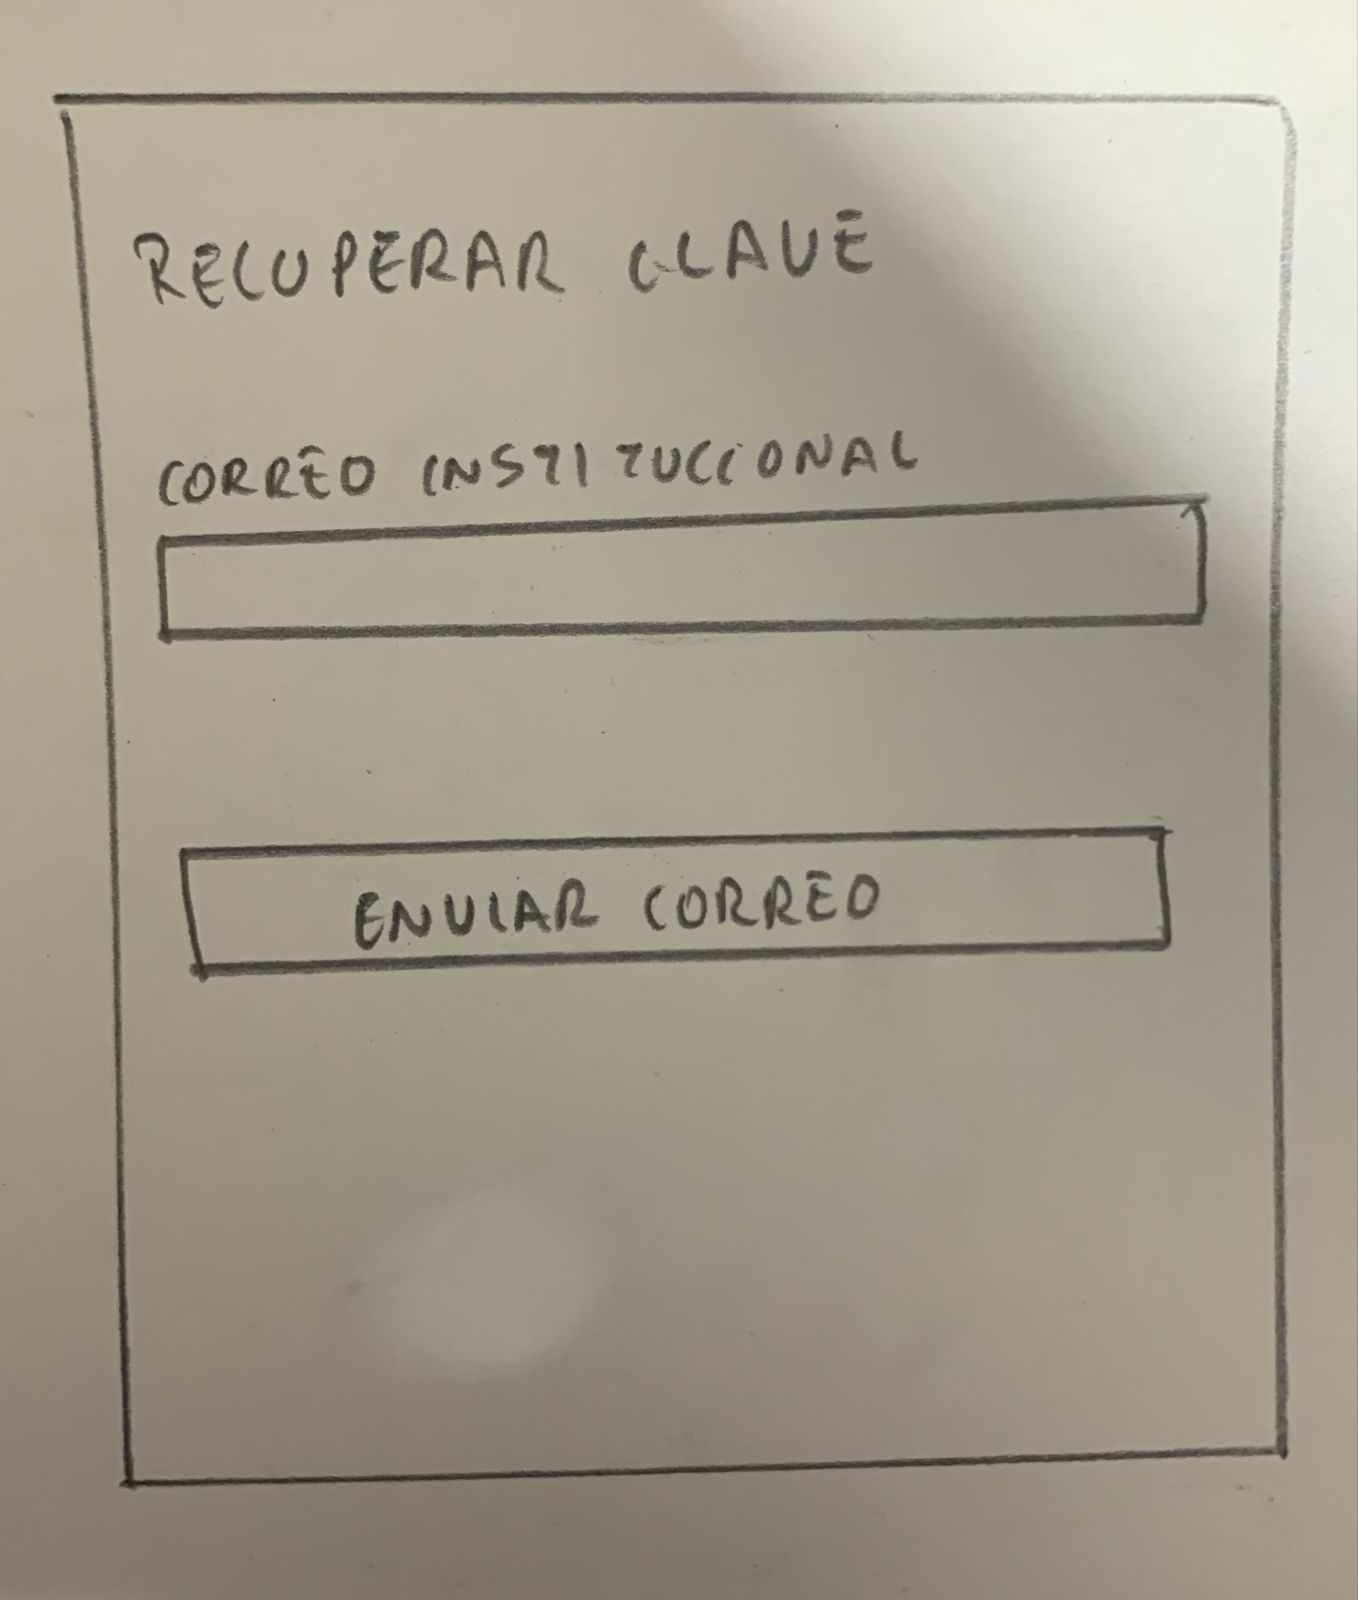 RECUPERAR CLAVE
CORREO INSTITUCIONAL
ENVIAR CORREO